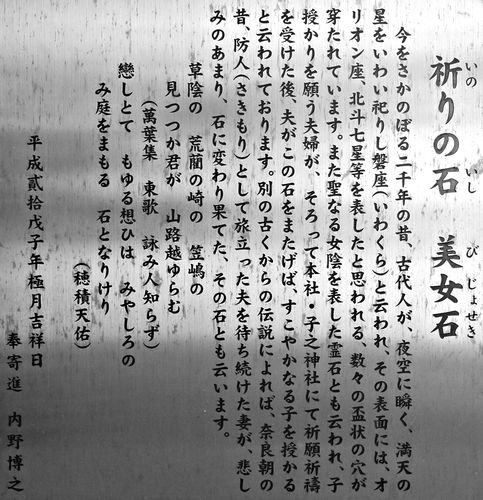 祈りの石 美女石
いの いし びじょせき
今をさかのぼる二千年の昔、古代人が、夜空に瞬く、満天の
星をいわい祀りし磐座(いわくら)と云われ、その表面には、オ
リオン座、北斗七星等を表したと思われる、数々の盃状の穴が
穿たれています。また聖なる女陰を表した霊石とも云われ、子
授かりを願う夫婦が、そろって本社・子之神社にて祈願祈禱
を受けた後、夫がこの石をまたげば、すこやかなる子を授かる
と云われております。別の古くからの伝説によれば、奈良朝の
昔、防人(さきもり)として旅立った夫を待ち続けた妻が、悲し
みのあまり、石に変わり果てた、その石とも云います。
草陰の 荒藺の崎の 笠嶋の
見つつか君が 山路越ゆらむ
(萬葉集 東歌 詠み人知らず)
戀しとて もゆる想ひは みやしろの
み庭をまもる 石となりけり
(穂積天佑)
平成貳拾戊子年極月吉祥日
奉寄進 内野博之